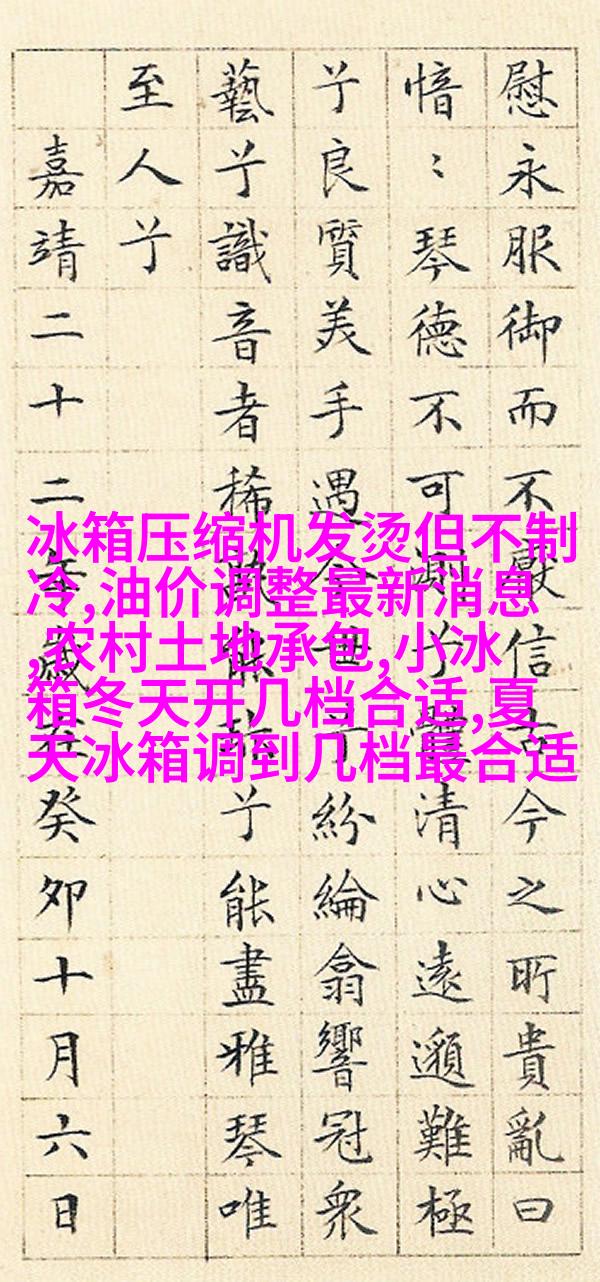 慰永服御而不厭信古今之所貴亂曰
愔〻琴德不可測兮體清心遠邈難極
兮良質美手遇今世兮紛綸翕響冠衆
藝兮識音者稀孰能珍兮能盡雅琴唯
至人兮
嘉靖二十二年歲在癸卯十月六日
冰箱压缩机发烫但不制
冷,油价调整最新消息
,农村土地承包,小冰
箱冬天开几档合适,夏
天冰箱调到几档最合适